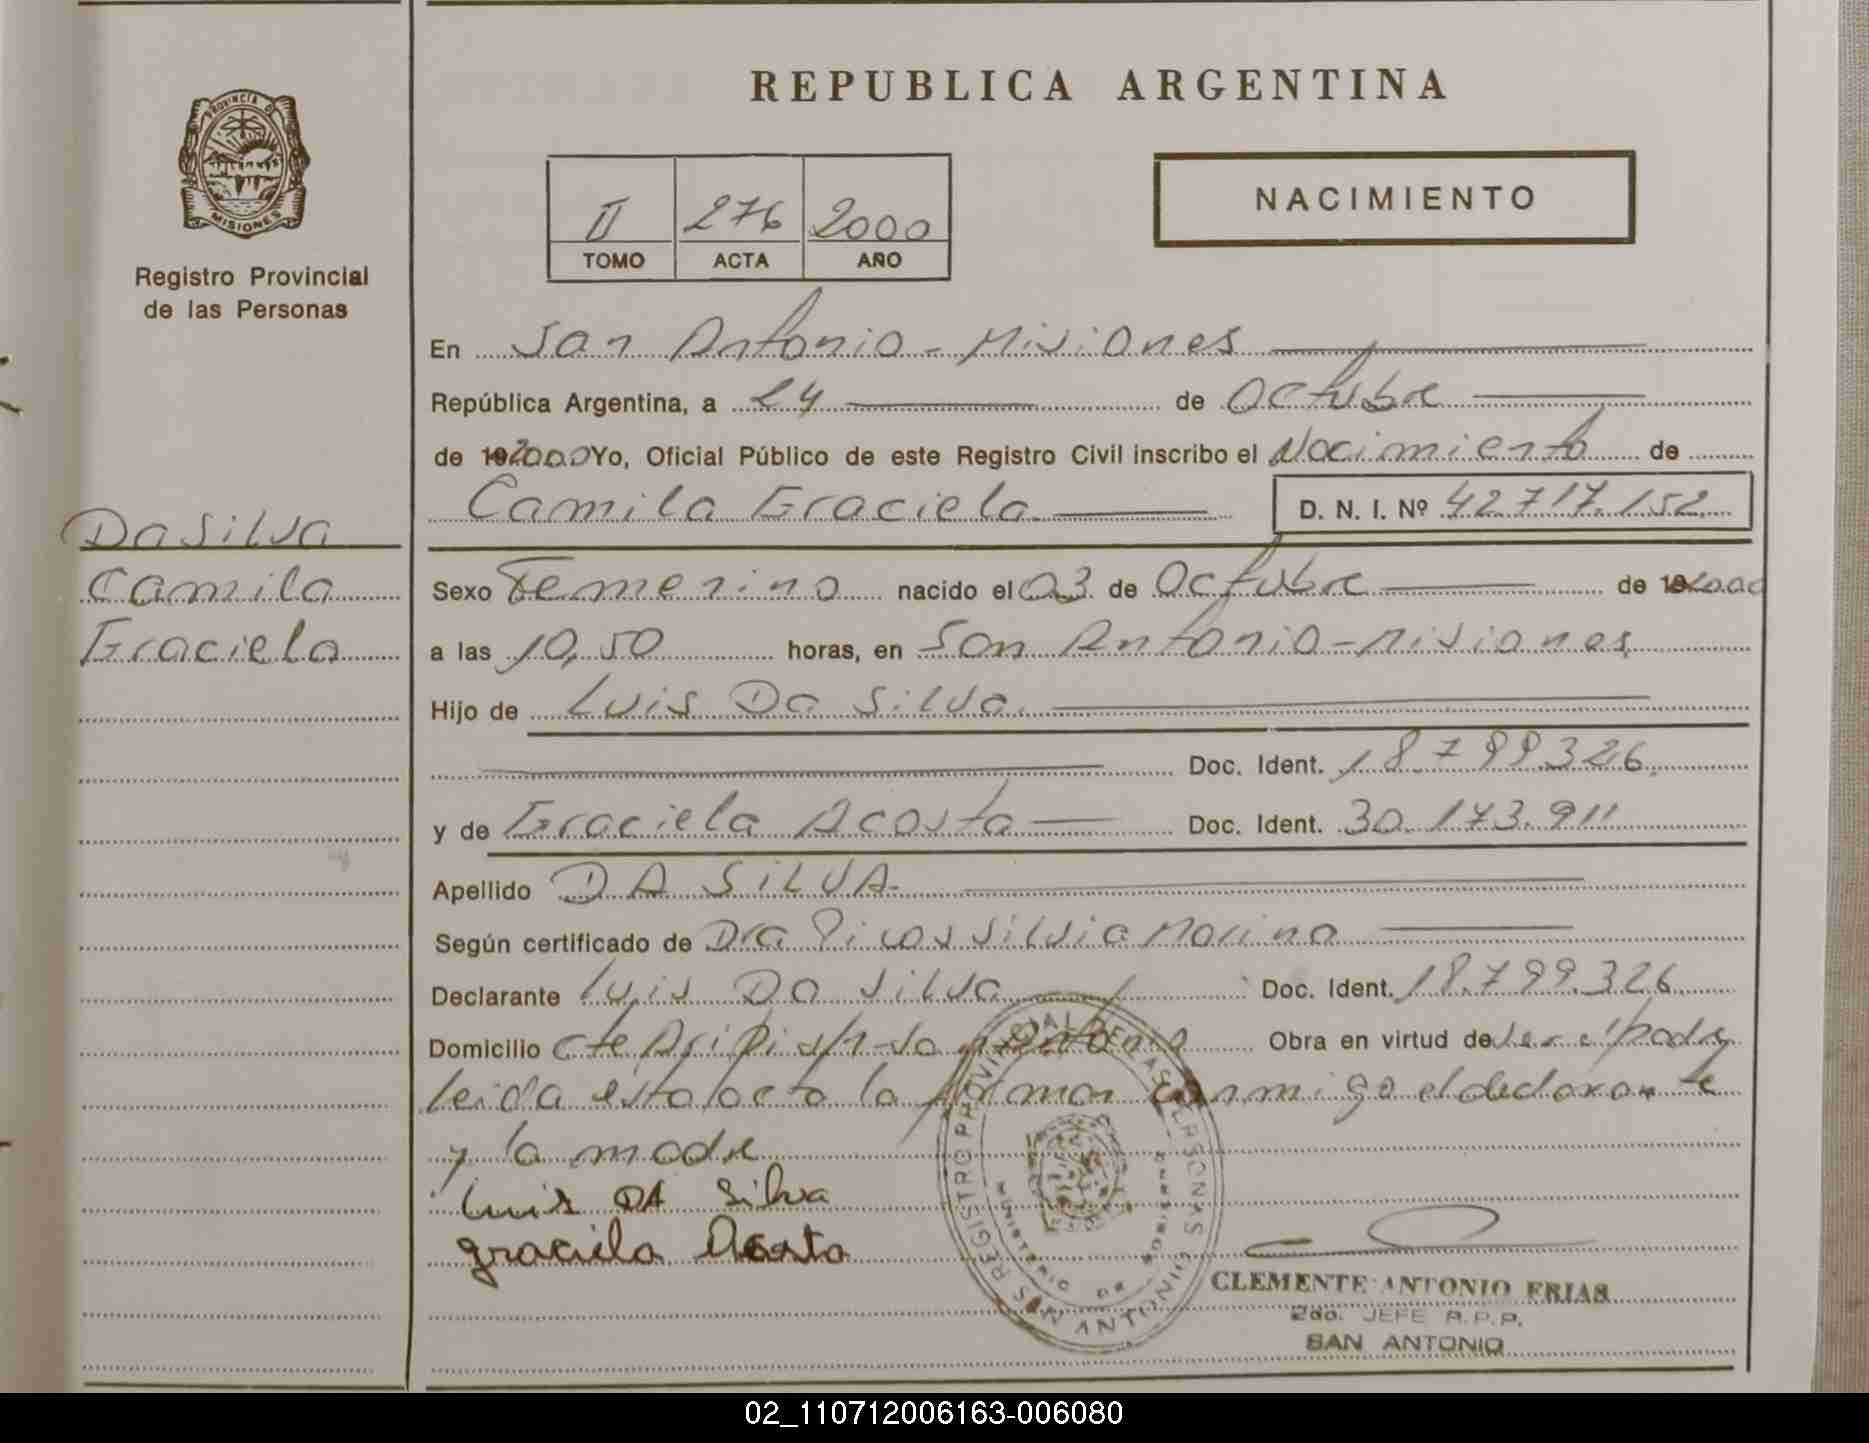 REPUBLICA ARGENTINA
PROVINCIA DE
MISIONES
Registro Provincial
de las Personas
II 276 2000
TOMO ACTA AÑO
NACIMIENTO
En San Antonio - Misiones
República Argentina, a 24 de Octubre
de 19 2000 Yo, Oficial Público de este Registro Civil inscribo el Nacimiento de
Camila Graciela D. N. I. Nº 42.717.152
Da Silva
Camila
Graciela
Sexo Femenino nacido el 03 de Octubre de 19 2000
a las 10,50 horas, en San Antonio - Misiones
Hijo de Luis Da Silva.
Doc. Ident. 18.799.326.
y de Graciela Acosta Doc. Ident. 30.173.911
Apellido DA SILVA
Según certificado de Dra Silvia
Declarante Luis Da Silva Doc. Ident. 18.799.326
Domicilio s/n - San Antonio Obra en virtud de ser el padre
leida esta acta la firman conmigo el declarante
y la madre
Luis DA Silva
graciela Acosta
REGISTRO PROVINCIAL DE LAS PERSONAS
MINISTERIO DE GOBIERNO
SAN ANTONIO
CLEMENTE ANTONIO FRIAS
2do. JEFE R.P.P.
SAN ANTONIO
02_110712006163-006080